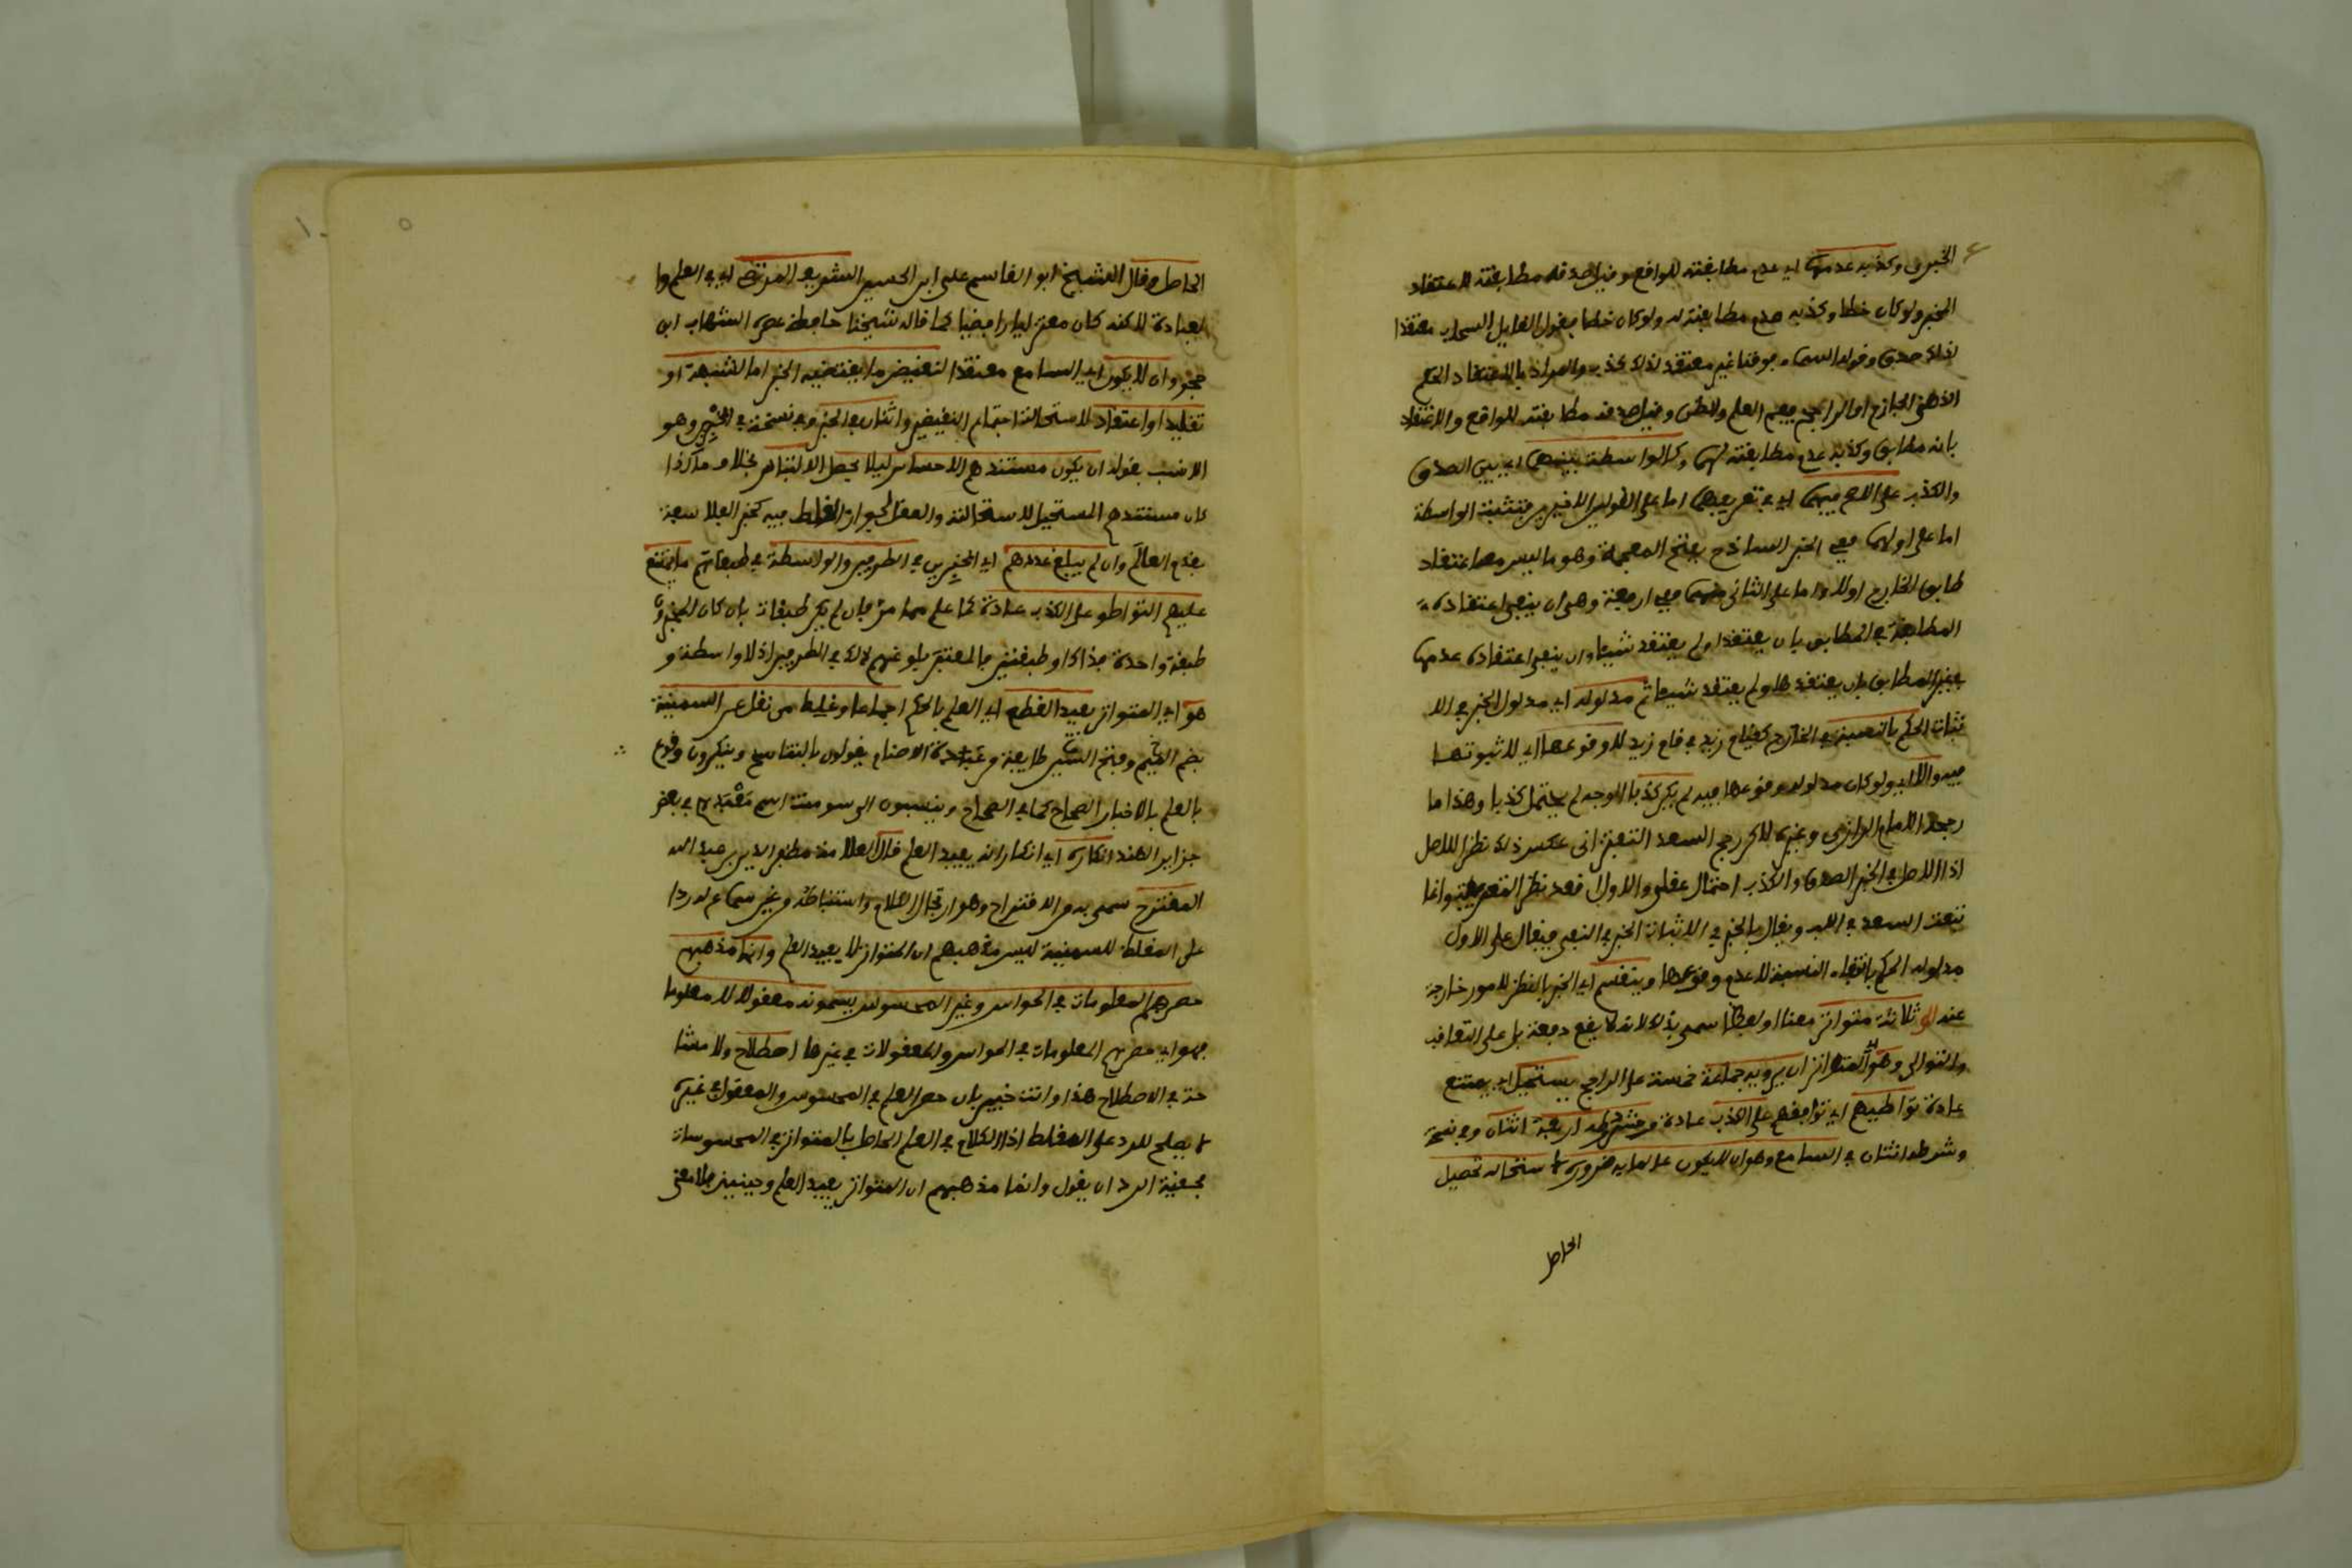 الخبرى وكذبه عدمها اي عدم مطابقته للواقع وقيل صدقه مطابقته لاعتقاد
المخبر ولو كان خطا وكذبه عدم مطابقته له ولو كان خطا فقول القايل السماء معتقدا
ذلك صدق وقوله السماء فوقنا غير معتقد لذلك كذب والمراد بالاعتقاد الحكم
الذهني الجازم او الراجح فيعم العلم والظن وقيل صدقه مطابقته للواقع والاعتقاد
بانه مطابق وكذبه عدم مطابقته لهما وكالواسطة بينهما اي بين الصدق
والكذب على الاصح فيهما اي في تعريفهما اما على القولين الاخيرين فتثبت الواسطة
اما على اولهما فهي الخبر الساذج بفتح المعجمة وهو ما ليس معه اعتقاد
طابق الخارج اولا واما على الثاني منهما فهي اربعة وهي ان ينفى اعتقاده
المطابقة في المطابق بان يعتقدا ولم يعتقد شيئا وان ينفى اعتقاده عدمها
في غير المطابق بان يعتقدها ولم يعتقد شيئا ثم مدلوله اي مدلول الخبر في الا
ثبات الحكم بالنسبة في الخارج كقيام زيد في قام زيد لا وقوعها اي لا ثبوتها
فيه والا اي ولو كان مدلوله وقوعها فيه لم يكن كذبا اوجه لم يحتمل كذبا وهذا ما
رجحه الامام الرازي وغيره لاكن رجح السعد التفتزاني عكس ذلك نظرا للاصل
اذا الاصل في الخبر الصدق والكذب احتمال عقلي والاول قصد نظر التعريف وانما
تبعت السعد في اللب ويقال بالخبر في الاثبات الخبر في النفي فيقال على الاول
مدلوله الحكم بانتفاء النسبة لا عدم وقوعها وينقسم اي الخبر بالنظر لامور خارجة
عنه الى ثلاثة متواتر معنا او لفظا سمي بذلك لانه لا يقع دفعة بل على التعاقب
والتوالي وهو اي المتواتر ان يرويه جماعة خمسة على الراجح يستحيل اي يمتنع
عادة تواطيهم اي توافقهم على الكذب عادة وشرطه اربعة اثنان وفي نسخة
وشرطه اثنان في السامع وهو ان لا يكون عالما به ضرورة لاستحالة تحصيل
الحاصل
الحاصل وقال الشيخ ابو القاسم علي ابن الحسين الشريف المرتضى اي في العلم وا
لعبادة لاكنه كان معتزليا رافضيا كما قاله شيخنا حافظ عصره الشهاب ابن
حجر وان لا يكون اي السامع معتقدا لنقيض ما يقتضيه الخبر اما لشبهة او
تقليد او اعتقاد لاستحالة اجتماع النقيضين واثنان في الخبر وفي نسخة في المخبر وهو
الانسب بقوله ان يكون مستندهم الاحساس ليلا يحصل الالتباس بخلاف ما كذا
كان مستندهم المستحيل لاستحالته والعقل لجواز الغلط فيه كخبر الفلاسفة
بقدم العالم وان لم يبلغ عددهم اي المخبرين في الطرفين والواسطة في طبقاتهم ما يمتنع
عليهم التواطو على الكذب عادة كما علم مما مر فان لم يكن طبقات بان كان المخبرون
طبقة واحدة فذاك او طبقتين فالمعتبر بلوغهم ذلك في الطرفين اذ لا واسطة و
هو اي المتواتر يفيد القطع اي العلم بالحكم اجماعا وغلط من نقل عن السمنية
بضم السين وفتح الميم طايفة من عبدة الاصنام يقولون بالتناسخ وينكرون وقوع
بالعلم بالاخبار الصحاح كما في الصحاح وينسبون الى سومنت اسم معبدهم في بعض
جزاير الهند انكاره اي انكار انه يفيد العلم قال العلامة مظفر الدين بن عبد الله
المقترح سمي به من الاقتراح وهو ارتجال الكلام واستنباطه من غير سماع له ردا
على المغلط للسمنية ليس مذهبهم ان المتواتر لا يفيد العلم وانما مذهبهم
حصرهم المعلومات في الحواس وغير المحسوس يسمونه معقولا لا معلوما
فهو اي حصرهم المعلومات في الحواس والمعقولات في غيرها اصطلاح ولا مشا
حة في الاصطلاح هذا وانت خبير بان حصر العلم في المحسوس والمعقول في غيره
لا يصلح للرد على المغلط اذا الكلام في العلم الحاصل بالمتواتر في المحسوسات
فحقيقة الرد ان يقول وانما مذهبهم ان المتواتر يفيد العلم وحينيذ فلا معنى